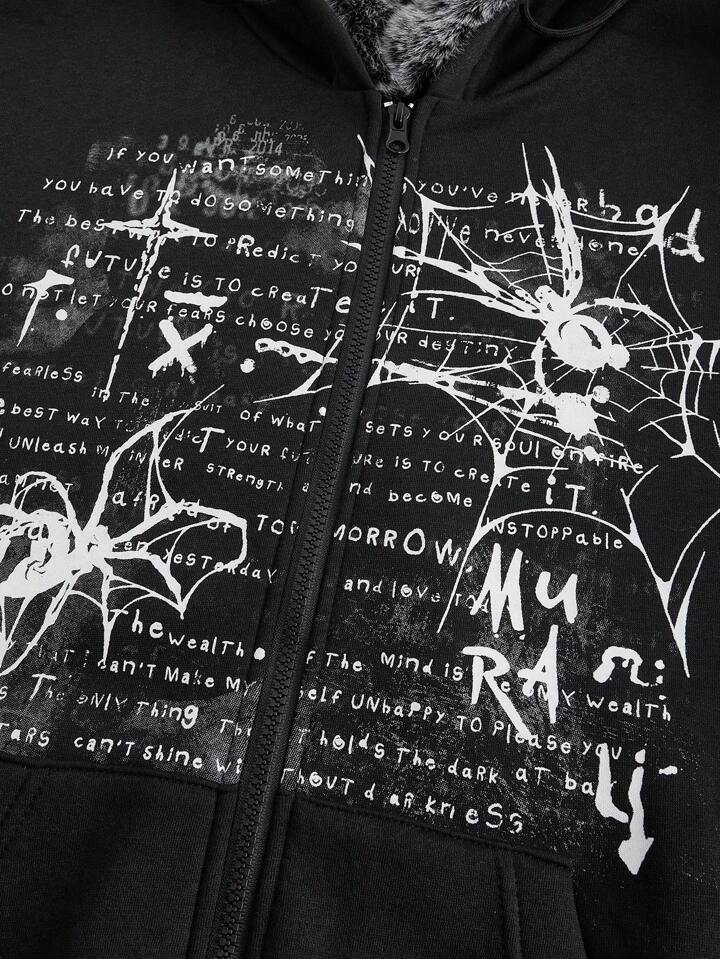 2014
if you want something you've never had
you have to do something you've never done.
The best way to predict your
future is to create it.
Do not let your fears choose your destiny
fearless in the pursuit of what sets your soul on fire
best way to predict your future is to create it.
unleash my inner strength and become unstoppable
am not afraid of tomorrow,
seen yesterday and love tod
Mu
The wealth of the mind is the only wealth
RA
can't make myself unhappy to please you
The only thing that holds the dark at bay
stars can't shine without darkness